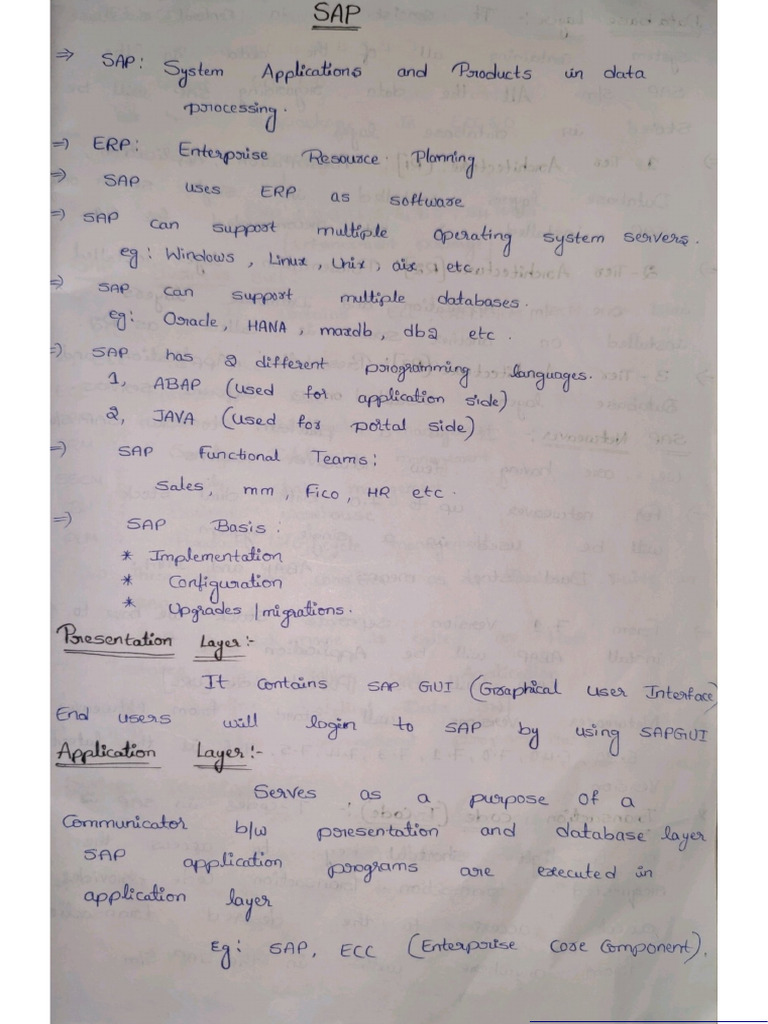 SAP
⇒ SAP: System Applications and Products in data
processing.
⇒ ERP: Enterprise Resource Planning
⇒ SAP uses ERP as software
⇒ SAP can support multiple operating system servers.
eg: Windows, Linux, Unix, aix, etc
⇒ SAP can support multiple databases.
eg: Oracle, HANA, maxdb, db2 etc.
⇒ SAP has 2 different programming languages.
1, ABAP (used for application side)
2, JAVA (used for portal side)
⇒ SAP Functional Teams:
Sales, mm, Fico, HR etc.
⇒ SAP Basis:
* Implementation
* Configuration
* Upgrades / migrations.
Presentation Layer:-
It contains SAP GUI (Graphical User Interface)
End users will login to SAP by using SAPGUI
Application Layer:-
Serves as a purpose of a
Communicator b/w presentation and database layer
SAP application programs are executed in
application layer
Eg: SAP, ECC (Enterprise Core Component).